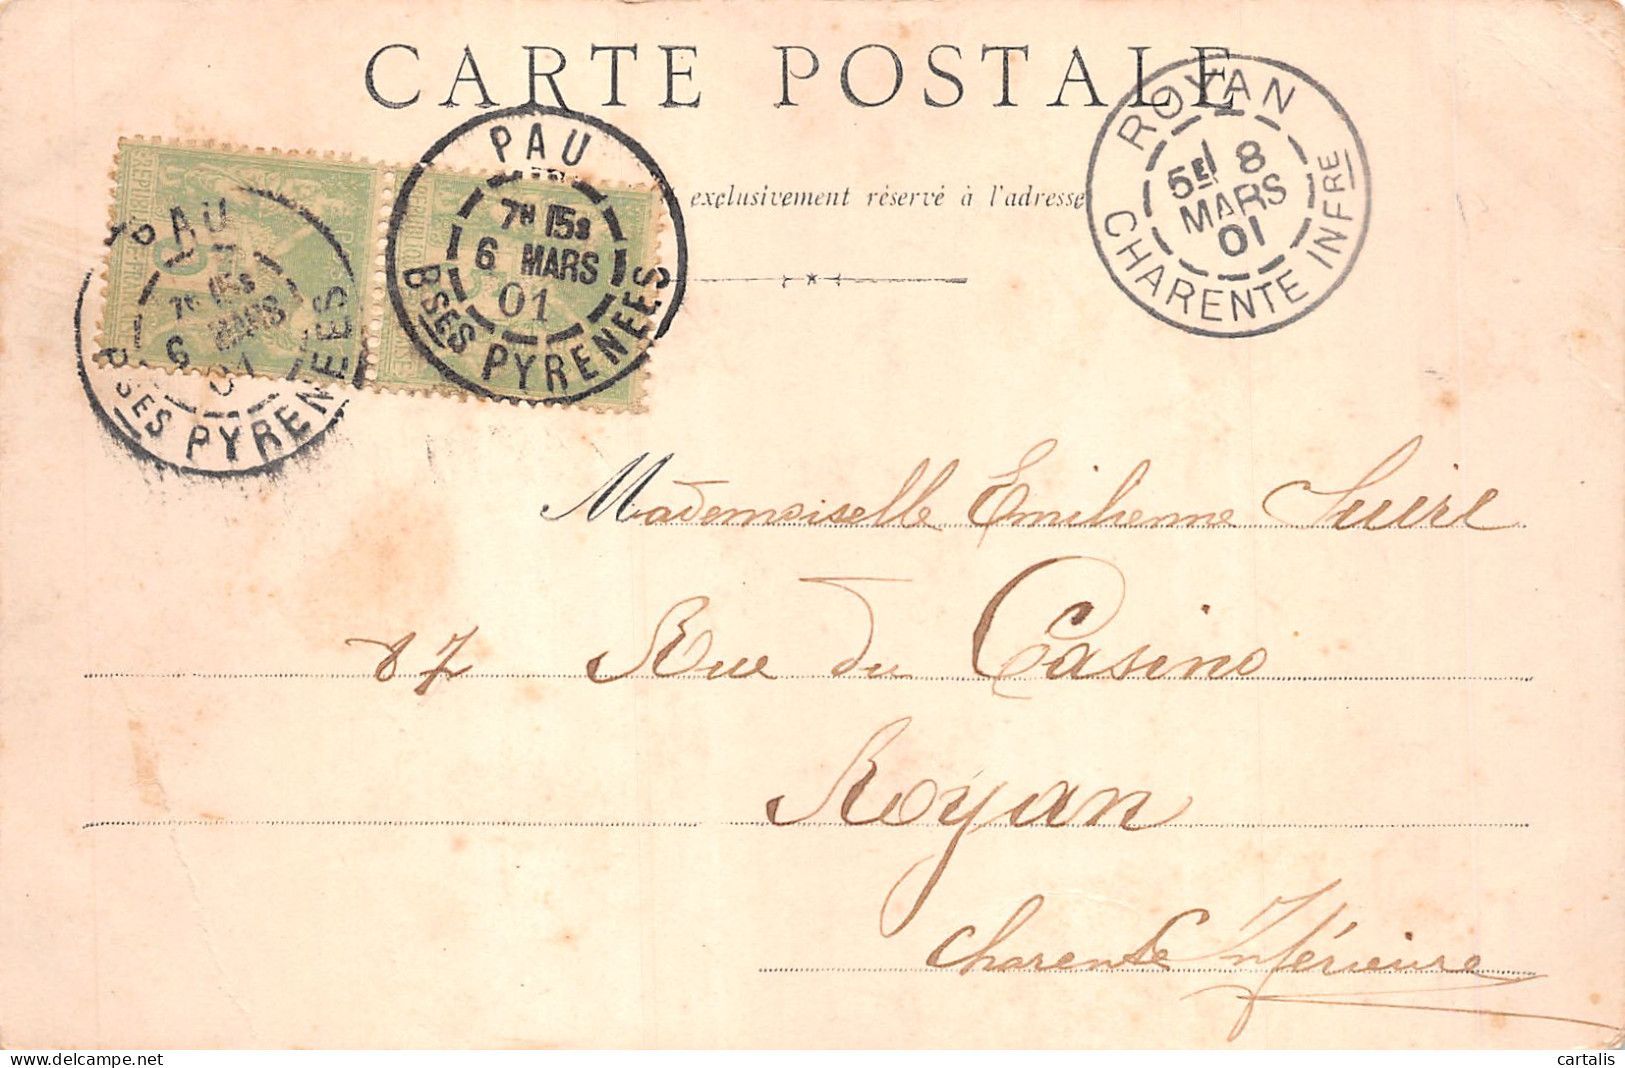 CARTE POSTALE
exclusivement réservé à l'adresse
PAU
7H 15S
6 MARS
01
BSES PYRENEES
PAU
7H 15S
6 MARS
01
BSES PYRENEES
ROYAN
5E 8
MARS
01
CHARENTE INFRE
Mademoiselle Emilienne Suire
87 Rue du Casino
Royan
Charente Inférieure
cartalis